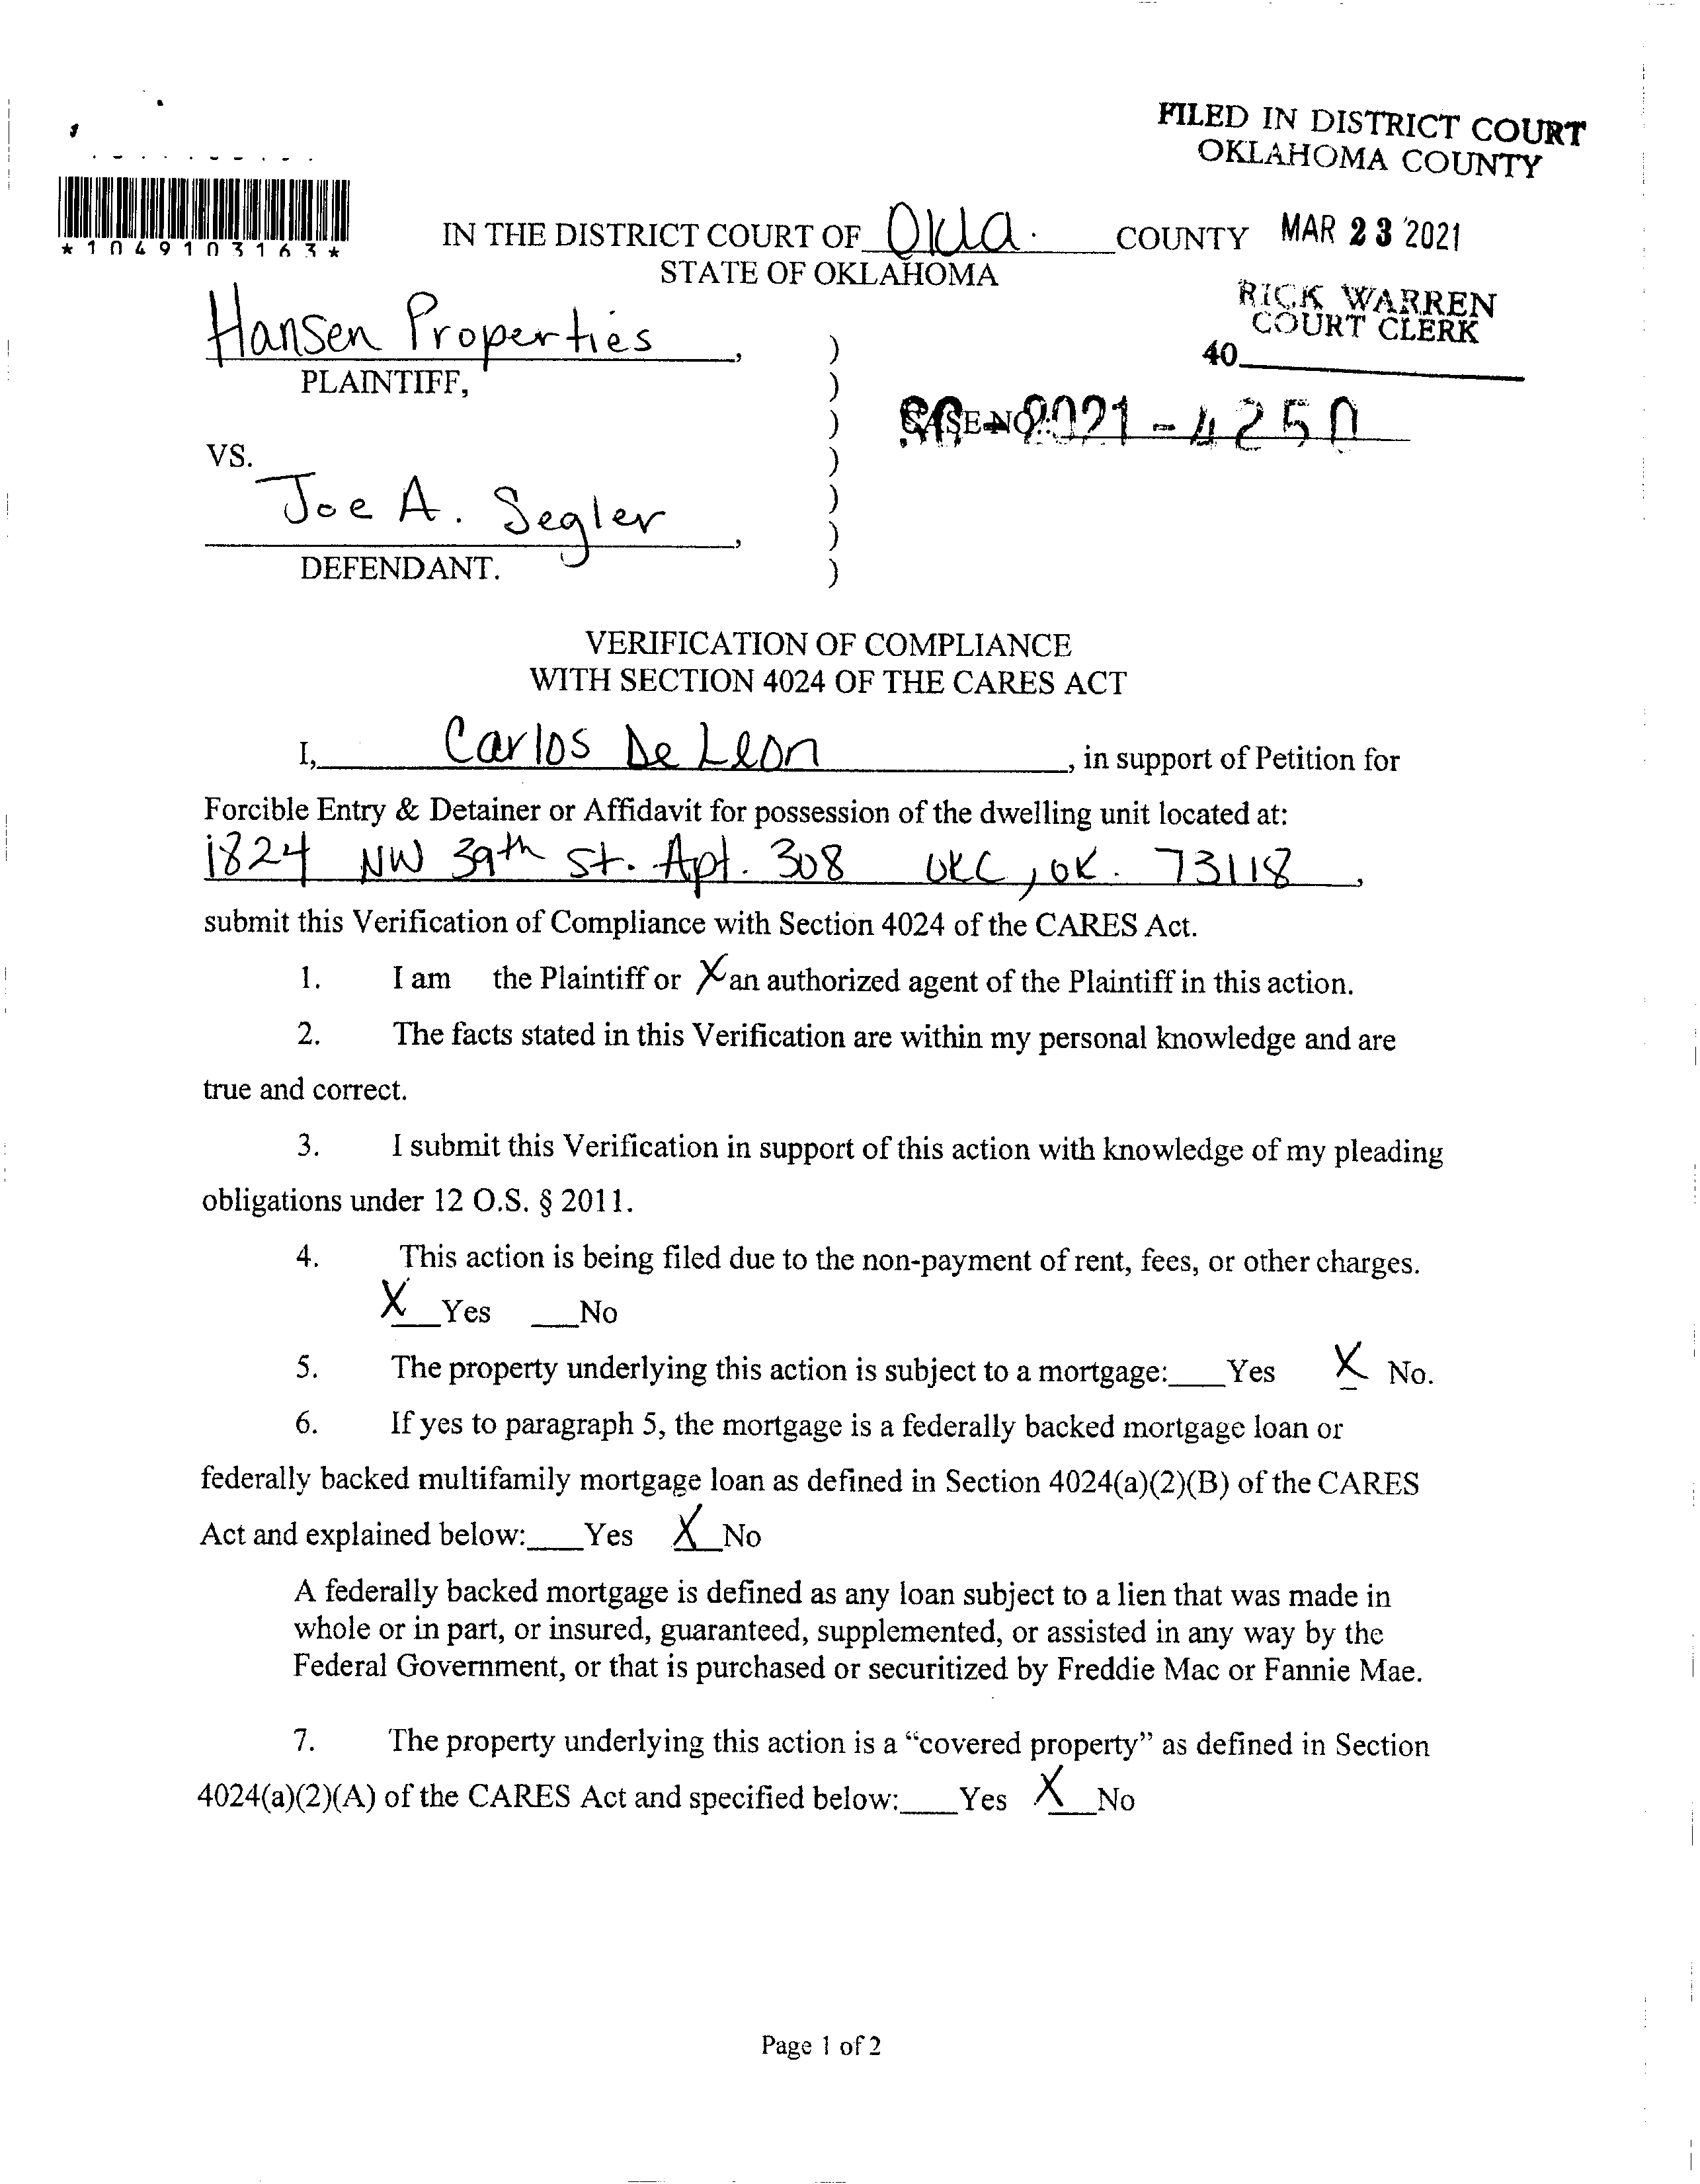 FILED IN DISTRICT COURT
OKLAHOMA COUNTY
*1049103163*
IN THE DISTRICT COURT OF Okla. COUNTY MAR 23 2021
STATE OF OKLAHOMA
RICK WARREN
COURT CLERK
40
Hansen Properties,
PLAINTIFF,
)
)
)
)
)
)
)
CASE NO. SC-2021-4250
VS.
Joe A. Segler,
DEFENDANT.
VERIFICATION OF COMPLIANCE
WITH SECTION 4024 OF THE CARES ACT
I, Carlos De Leon, in support of Petition for
Forcible Entry & Detainer or Affidavit for possession of the dwelling unit located at:
1824 NW 39th St. Apt. 308 OKC, OK. 73118,
submit this Verification of Compliance with Section 4024 of the CARES Act.
1. I am the Plaintiff or X an authorized agent of the Plaintiff in this action.
2. The facts stated in this Verification are within my personal knowledge and are
true and correct.
3. I submit this Verification in support of this action with knowledge of my pleading
obligations under 12 O.S. § 2011.
4. This action is being filed due to the non-payment of rent, fees, or other charges.
X Yes ___No
5. The property underlying this action is subject to a mortgage:___Yes X No.
6. If yes to paragraph 5, the mortgage is a federally backed mortgage loan or
federally backed multifamily mortgage loan as defined in Section 4024(a)(2)(B) of the CARES
Act and explained below:___Yes X No
A federally backed mortgage is defined as any loan subject to a lien that was made in
whole or in part, or insured, guaranteed, supplemented, or assisted in any way by the
Federal Government, or that is purchased or securitized by Freddie Mac or Fannie Mae.
7. The property underlying this action is a “covered property” as defined in Section
4024(a)(2)(A) of the CARES Act and specified below:___Yes X No
Page 1 of 2